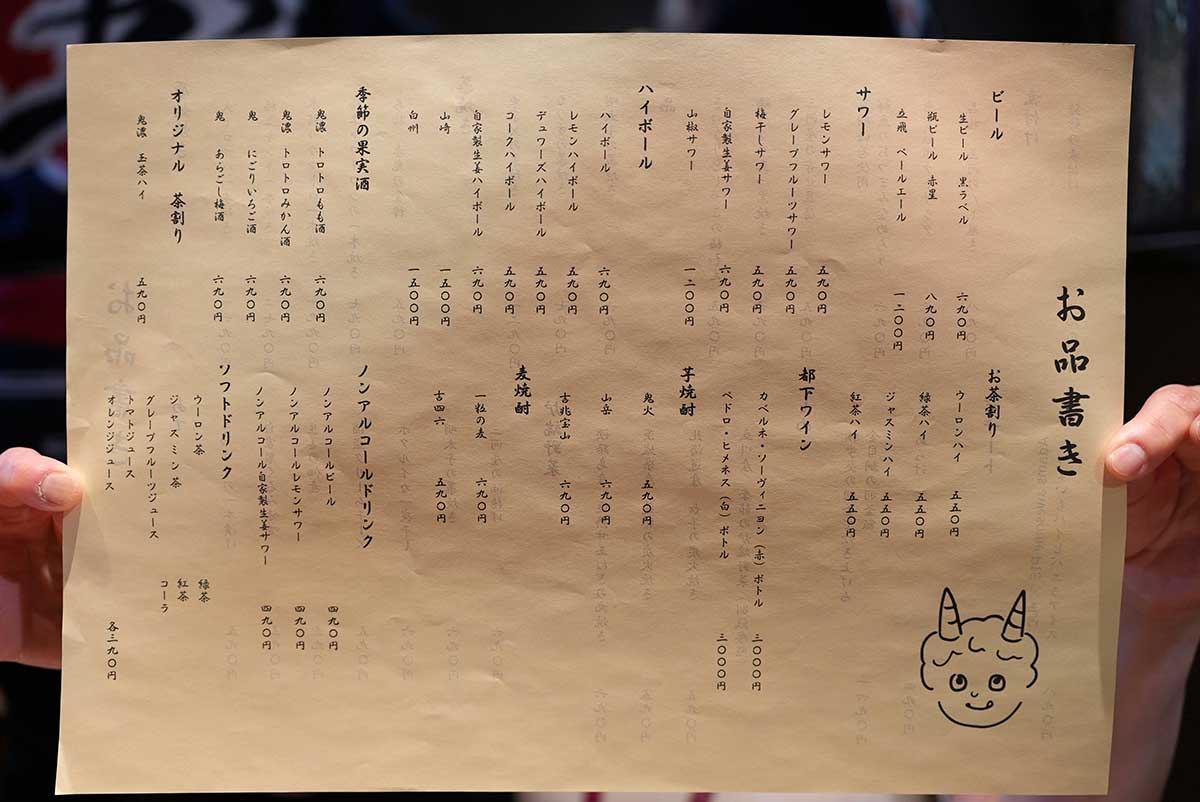 お品書き
ビール
生ビール 黒ラベル 六九〇円
瓶ビール 赤星 八九〇円
立飛 ペールエール 一二〇〇円
サワー
レモンサワー 五九〇円
グレープフルーツサワー 五九〇円
梅干しサワー 五九〇円
自家製生姜サワー 六九〇円
山椒サワー 一二〇〇円
ハイボール
ハイボール 六九〇円
レモンハイボール 五九〇円
デュワーズハイボール 五九〇円
コークハイボール 五九〇円
自家製生姜ハイボール 六九〇円
山崎 一五〇〇円
白州 一五〇〇円
季節の果実酒
鬼濃 トロトロもも酒 六九〇円
鬼濃 トロトロみかん酒 六九〇円
鬼 にごりいちご酒 六九〇円
鬼 あらごし梅酒 六九〇円
オリジナル 茶割り
鬼濃 玉茶ハイ 五九〇円
お茶割り
ウーロンハイ 五五〇円
緑茶ハイ 五五〇円
ジャスミンハイ 五五〇円
紅茶ハイ 五五〇円
都下ワイン
カベルネ・ソーヴィニヨン（赤）ボトル 三〇〇〇円
ペドロ・ヒメネス（白）ボトル 三〇〇〇円
芋焼酎
鬼火 五九〇円
山岳 六九〇円
古兆宝山 六九〇円
麦焼酎
一粒の麦 六九〇円
古四六 五九〇円
ノンアルコールドリンク
ノンアルコールビール 四九〇円
ノンアルコールレモンサワー 四九〇円
ノンアルコール自家製生姜サワー 四九〇円
ソフトドリンク
ウーロン茶 緑茶
ジャスミン茶 紅茶
グレープフルーツジュース コーラ
トマトジュース
オレンジジュース 各三九〇円